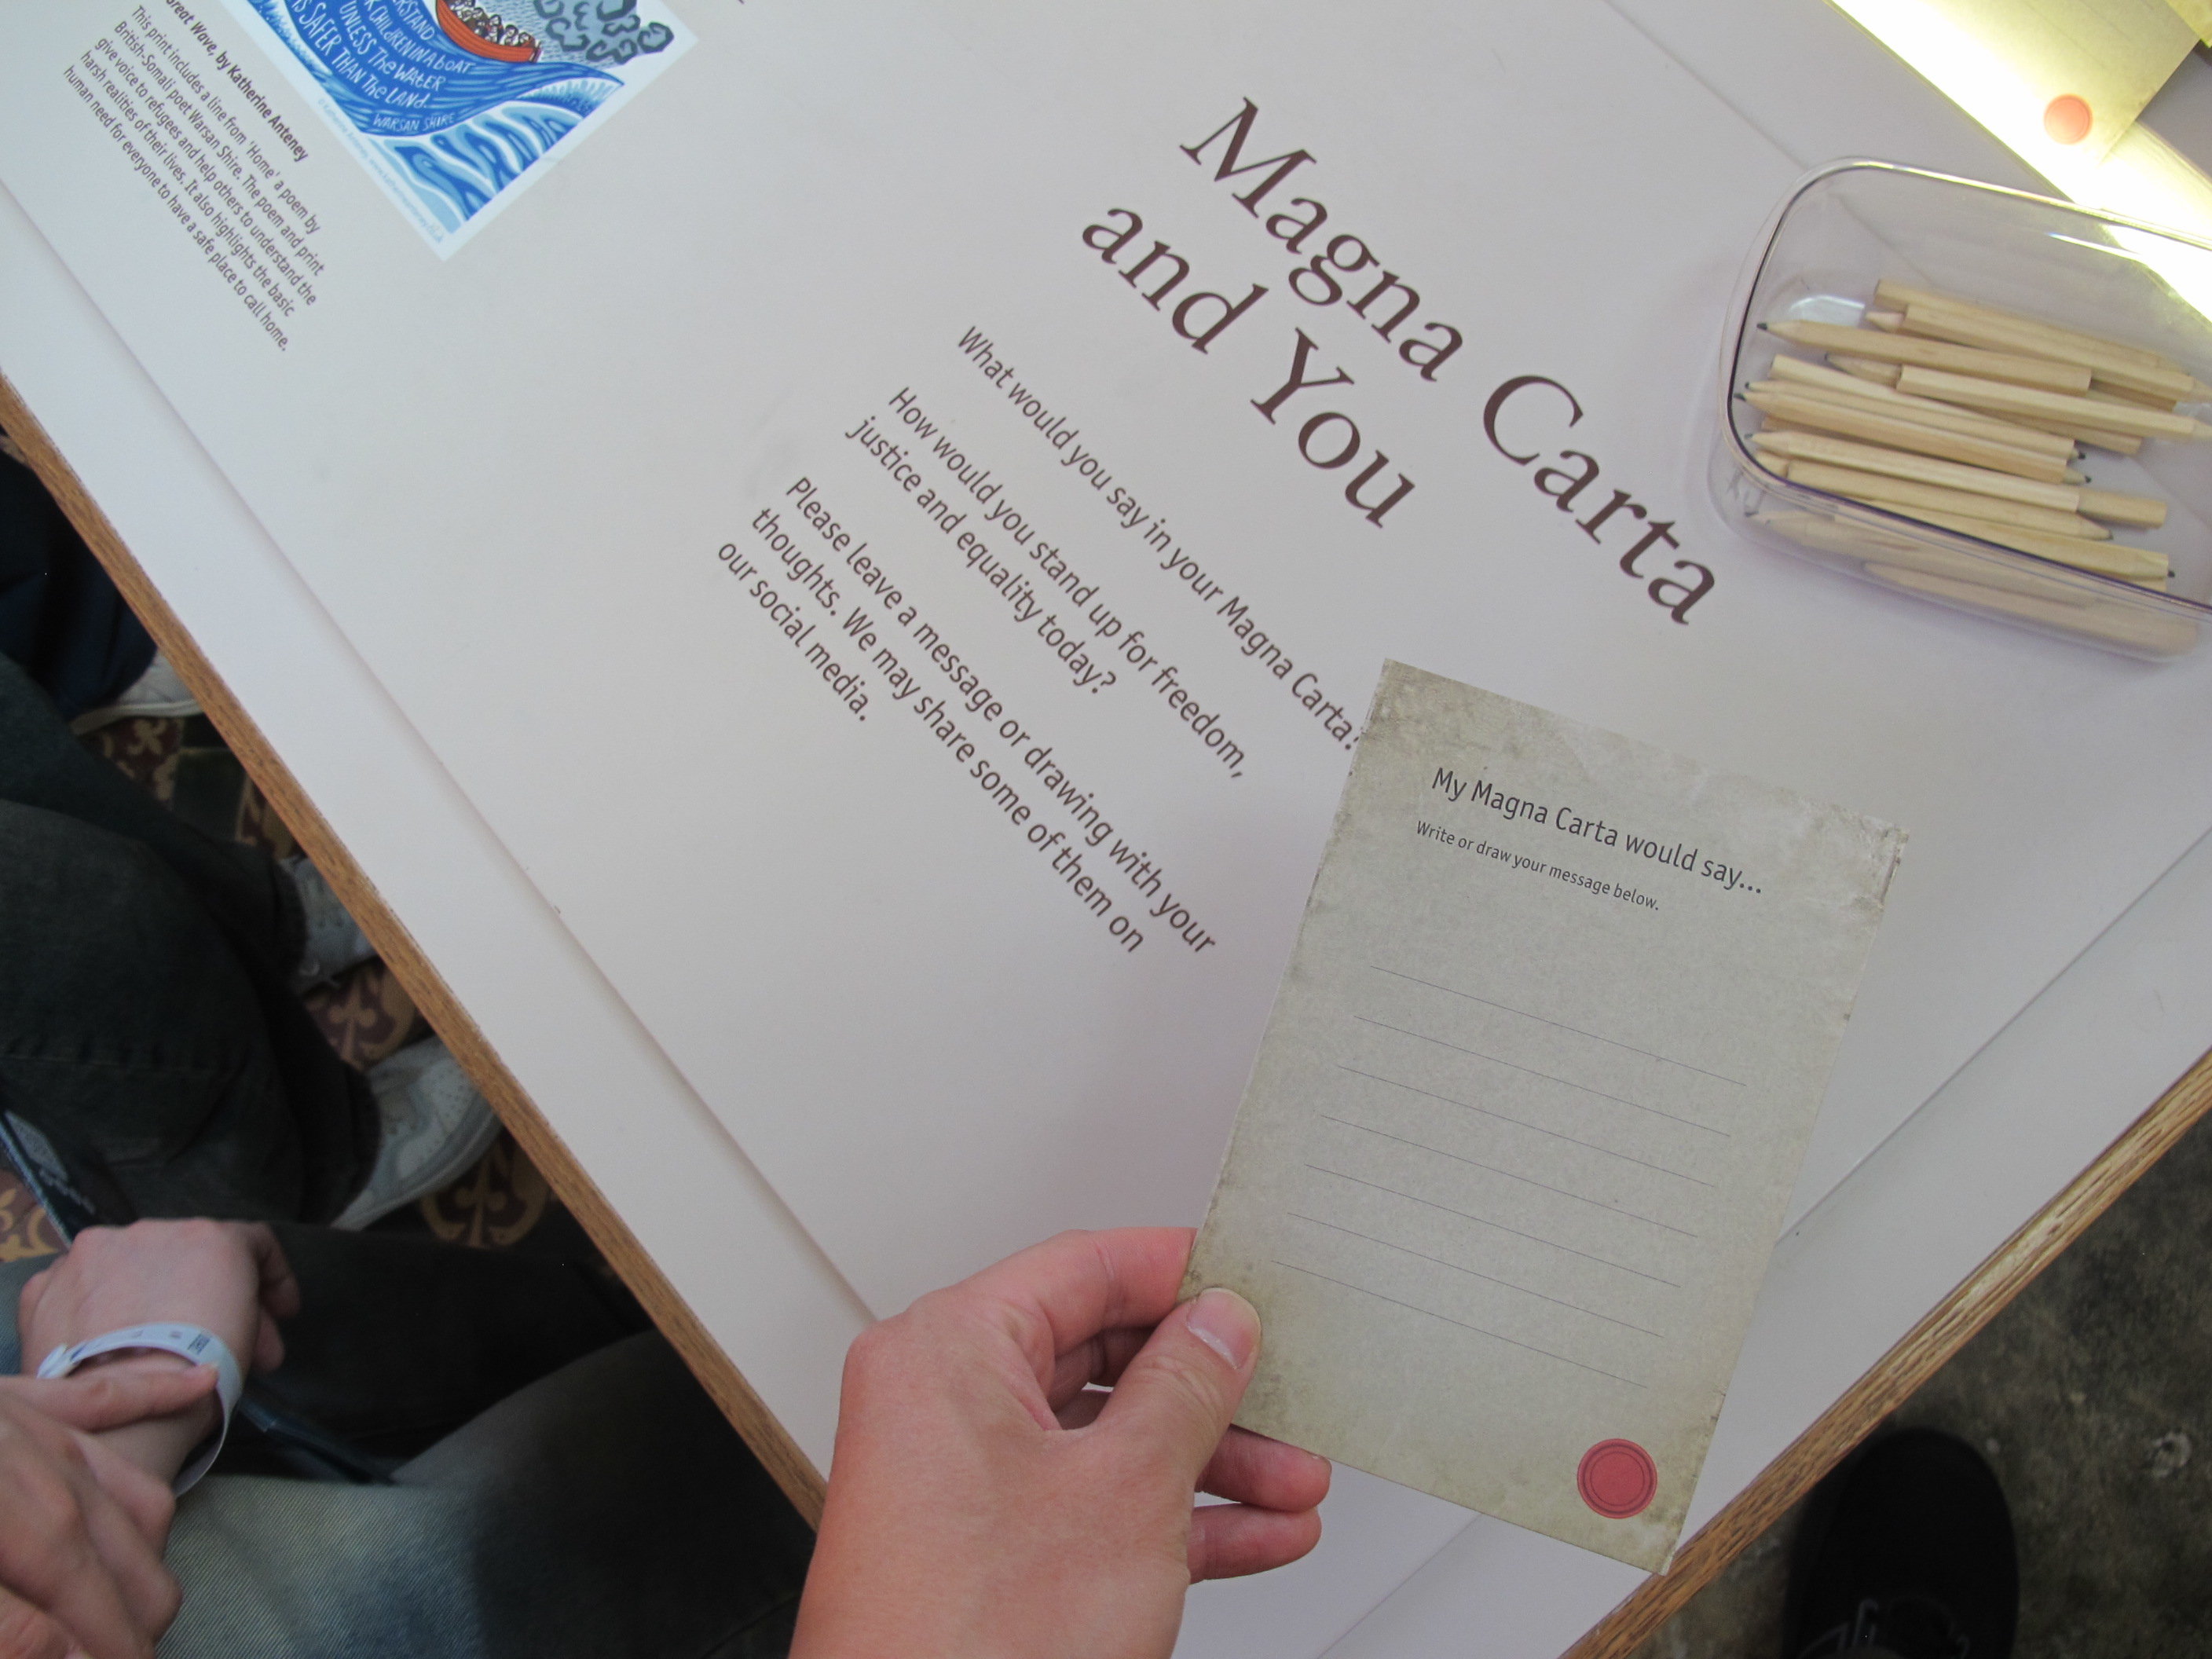 ERSTAND
R CHILDREN IN A BOAT
UNLESS THE WATER
IS SAFER THAN THE LAND.
WARSAN SHIRE
Great Wave, by Katherine Anteney
This print includes a line from 'Home' a poem by
British-Somali poet Warsan Shire. The poem and print
give voice to refugees and help others to understand the
harsh realities of their lives. It also highlights the basic
human need for everyone to have a safe place to call home.
Magna Carta
and You
What would you say in your Magna Carta?
How would you stand up for freedom,
justice and equality today?
Please leave a message or drawing with your
thoughts. We may share some of them on
our social media.
My Magna Carta would say...
Write or draw your message below.